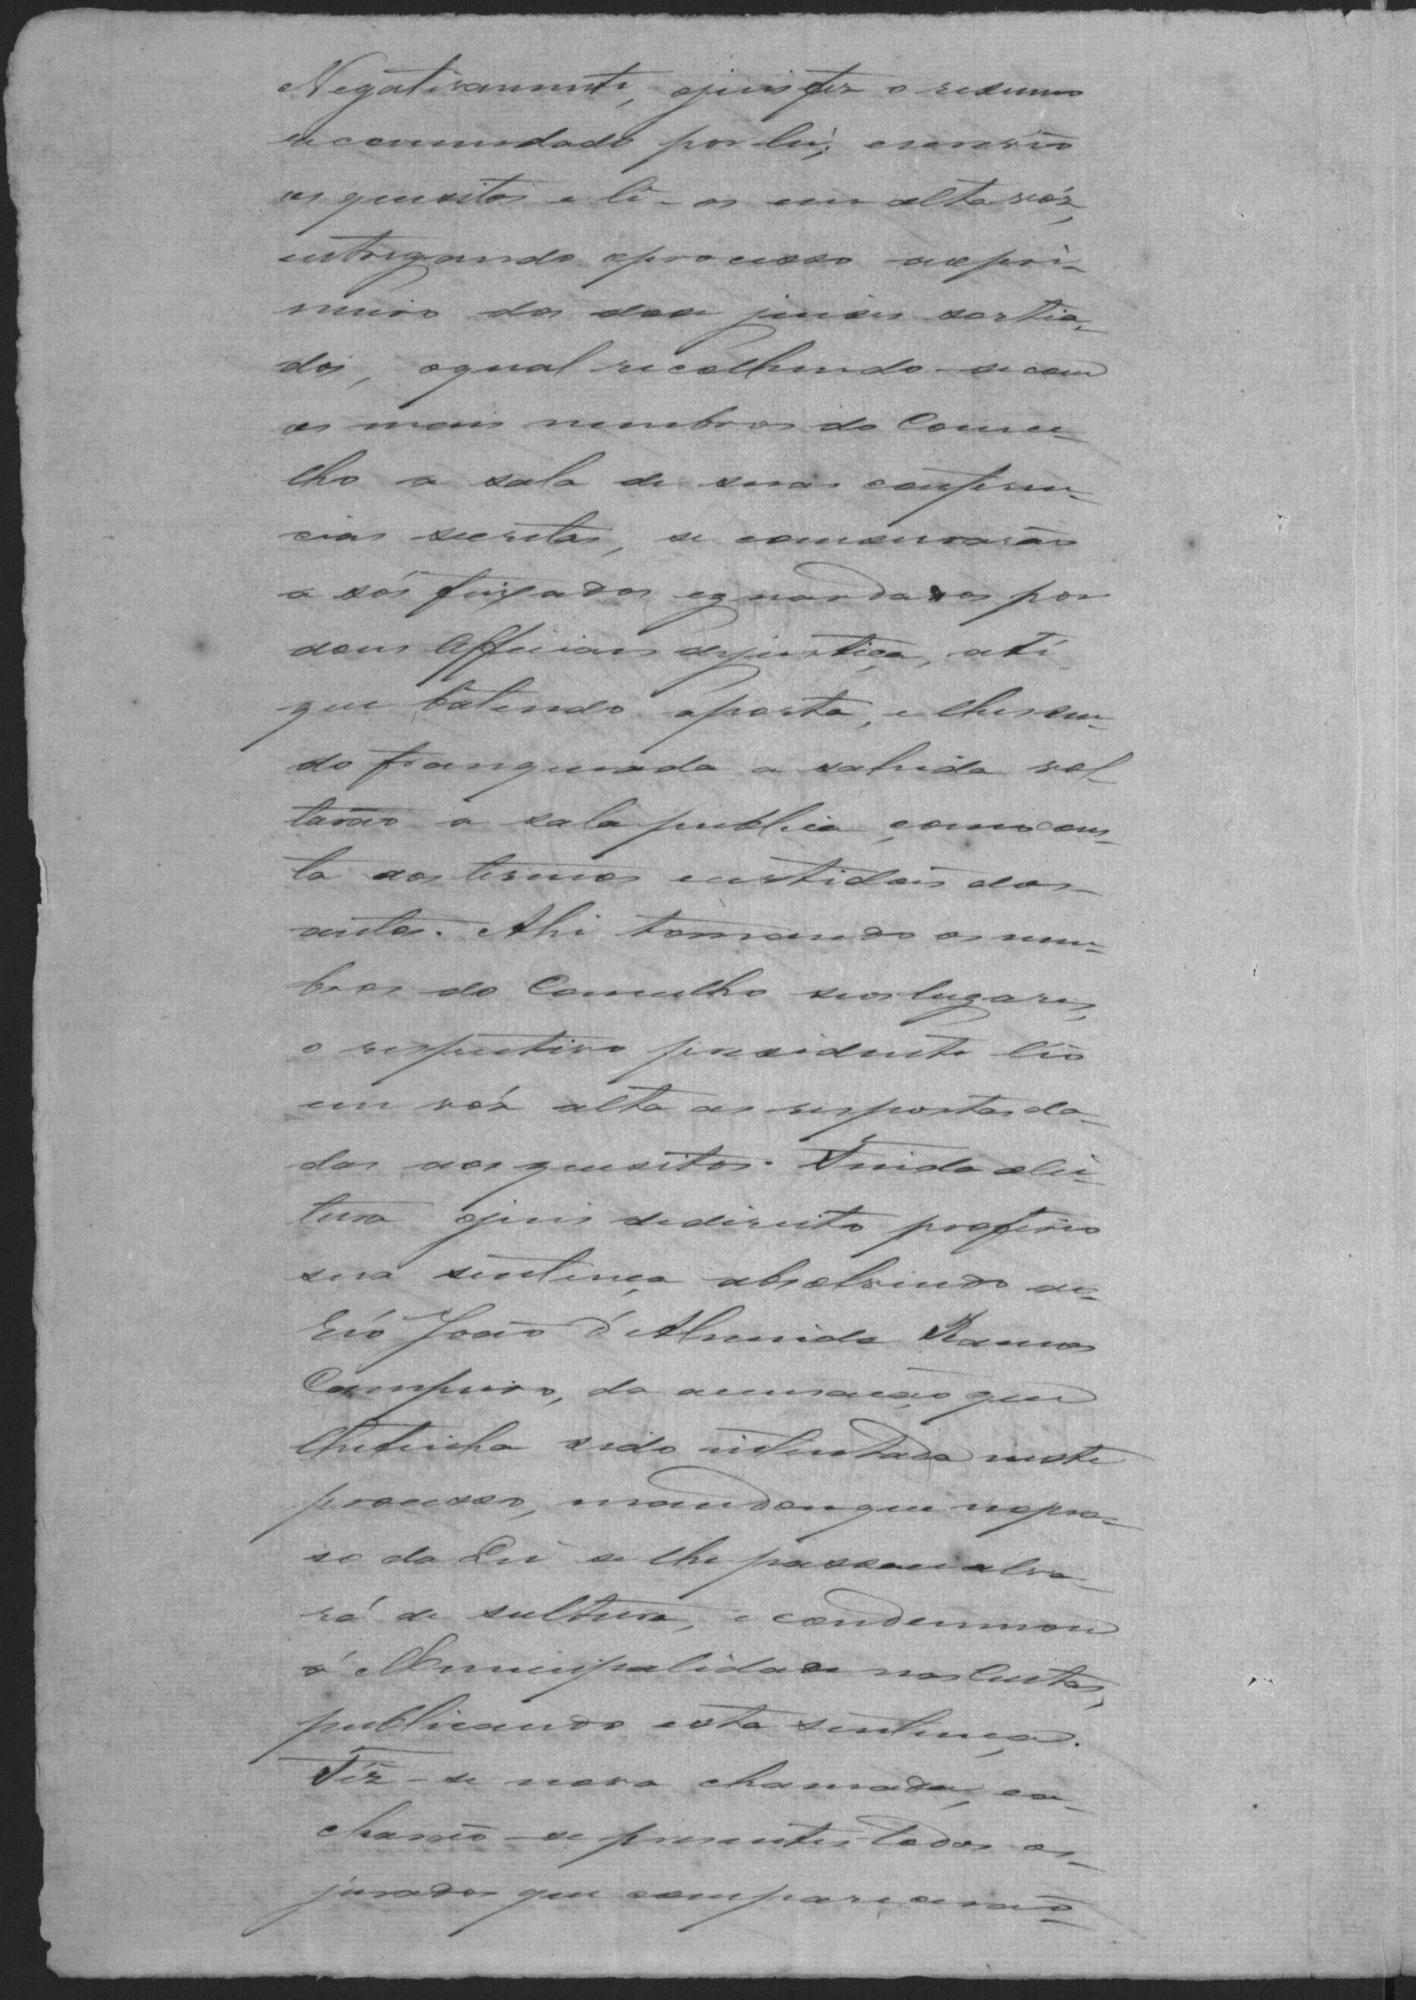 Negativamente, ojuis fez o resumo
recommendado por lei, escrevêo
os quesitos e lê-os em alta vós,
entregando oprocesso aopri-
meiro dos dose juises sortia-
dos, oqual recolhendo-se com
os mais membros do Conse-
lho a sala de suas conferen-
cias secretas, se conservarão
a sós feixados eguardados por
dous Officiaes dejustiça, até
que batendo aporta, e lhesen-
do franqueada a sahida vol-
tarão a sala publica, como cons-
ta dos termos e certidões dos
autos. Ahi tomando os mem-
bros do Conselho seos lugares,
o respectivo presidente lêo
em vós alta as respostas da-
das aos quesitos. Finda alei-
tura ojuis dedireito proferio
sua sentença absolvendo ao
Réo João d'Almeida Ramos
Campeiro, da accusação que
lhetinha sido intentada neste
processo, mandou que nopra-
so da Lei se lhe passasse alva-
rá de sultura, e condemnou
á Municipalidade nas Custas,
publicando esta sentença.
Fêz-se nova chamada, ea-
charão-se presentes todos os
jurados que comparecerão